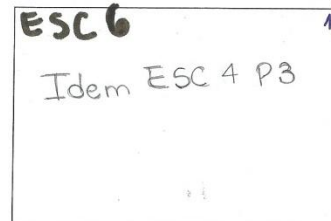 ESC 6
1
Idem ESC 4 P3